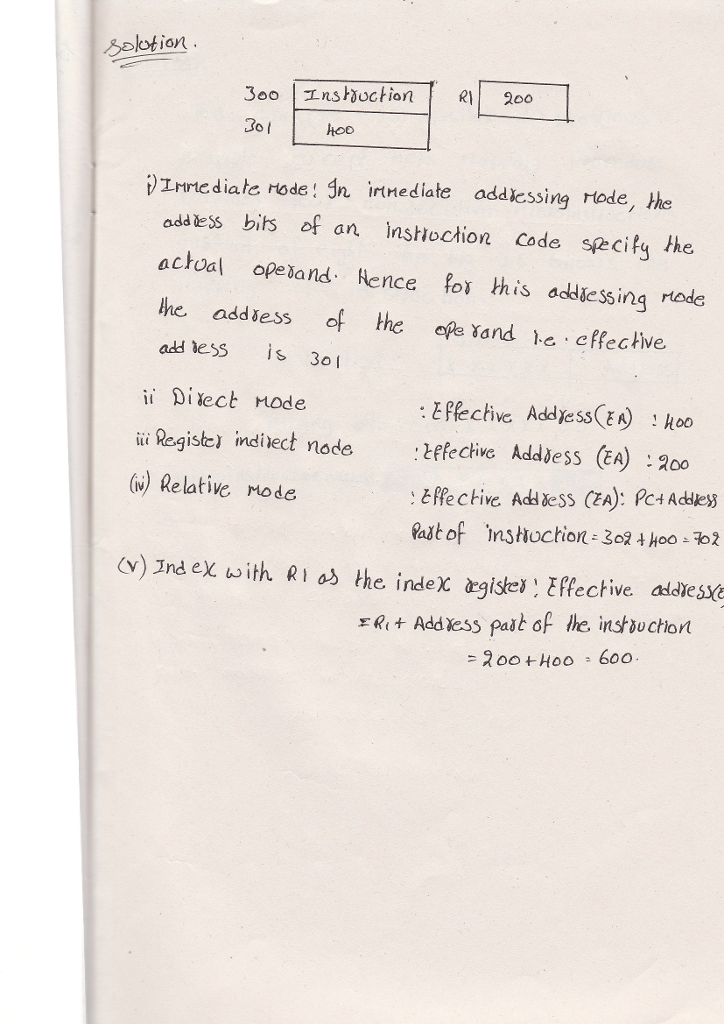 Solution.
300 Instruction R1 200
301 400
i) Immediate Mode: In immediate addressing Mode, the
address bits of an instruction code specify the
actual operand. Hence for this addressing mode
the address of the operand i.e. effective
address is 301
ii Direct Mode : Effective Address (EA) : 400
iii Register indirect node : Effective Address (EA) : 200
(iv) Relative Mode : Effective Address (EA): PC+Address
Part of instruction = 302 + 400 = 702
(v) Index with R1 as the index register: Effective address(E
= R1 + Address part of the instruction
= 200 + 400 = 600.